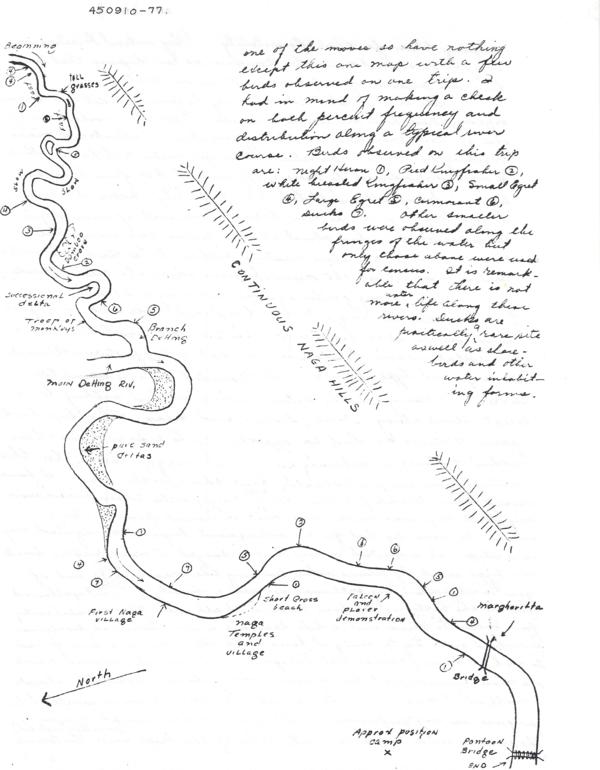 450910-77.
Beginning
one of the moves so have nothing
except this one map with a few
birds observed on one trip. I
had in mind of making a check
on both percent frequency and
distribution along a typical river
course. Birds observed on this trip
are: Night Heron ①, Pied Kingfisher ②,
white breasted Kingfisher ③, Small Egret
④, Large Egret ⑤, Cormorant ⑥,
Ducks ⑦. Other smaller
birds were observed along the
fringes of the water but
only those above were used
for census. It is remark-
able that there is not
more water life along these
rivers. Ducks are
practically a rare site
as well as shore-
birds and other
water inhabit-
ing forms.
Tall
grasses
Slow
Slow
Successional
delta
Troop of
monkeys
Branch
DeHing
Main DeHing Riv.
pure sand
deltas
CONTINUOUS NAGA HILLS
First Naga
village
Naga
Temples
and
village
Short Grass
beach
Falcon
and
plover
demonstration
Margherita
Bridge
North
Approx position
camp
x
Pontoon
Bridge
END